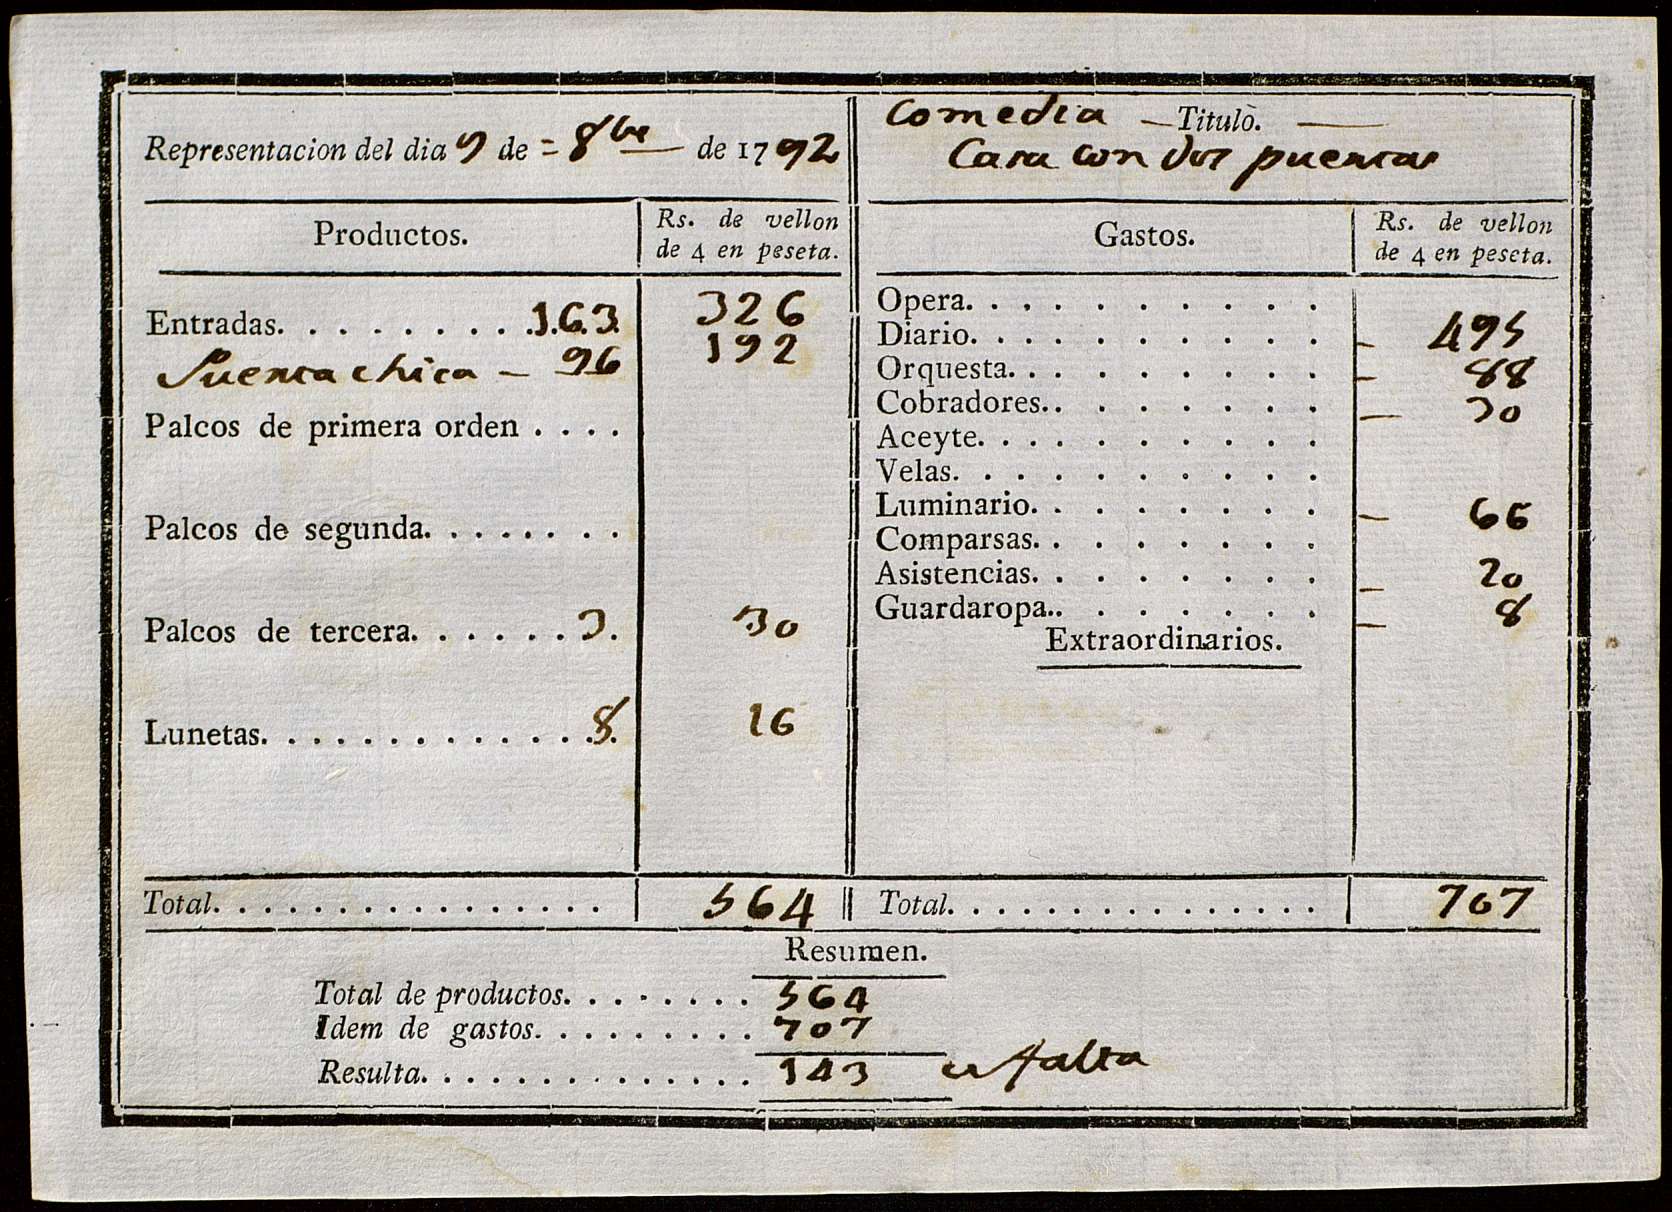 Representacion del dia 9 de = 8bre de 1792
Comedia — Titulò. —
Casa con dos puertas
Productos.
Rs. de vellon
de 4 en peseta.
Entradas. . . . . . . . . . 163. 326
Puerta chica — 96 192
Palcos de primera orden . . . .
Palcos de segunda. . . . . . . .
Palcos de tercera. . . . . . . 3. 30
Lunetas. . . . . . . . . . . . . . 8. 16
Total. . . . . . . . . . . . . . . . . 564
Gastos.
Rs. de vellon
de 4 en peseta.
Opera. . . . . . . . . .
Diario. . . . . . . . . . — 495
Orquesta. . . . . . . . . — 88
Cobradores. . . . . . . . — 30
Aceyte. . . . . . . . . .
Velas. . . . . . . . . .
Luminario. . . . . . . . — 66
Comparsas. . . . . . . .
Asistencias. . . . . . . . — 20
Guardaropa.. . . . . . . — 8
Extraordinarios.
Total. . . . . . . . . . . . . . . . 707
Resumen.
Total de productos. . . . . . . . 564
Idem de gastos. . . . . . . . . . 707
Resulta. . . . . . . . . . . . . . 143 falta